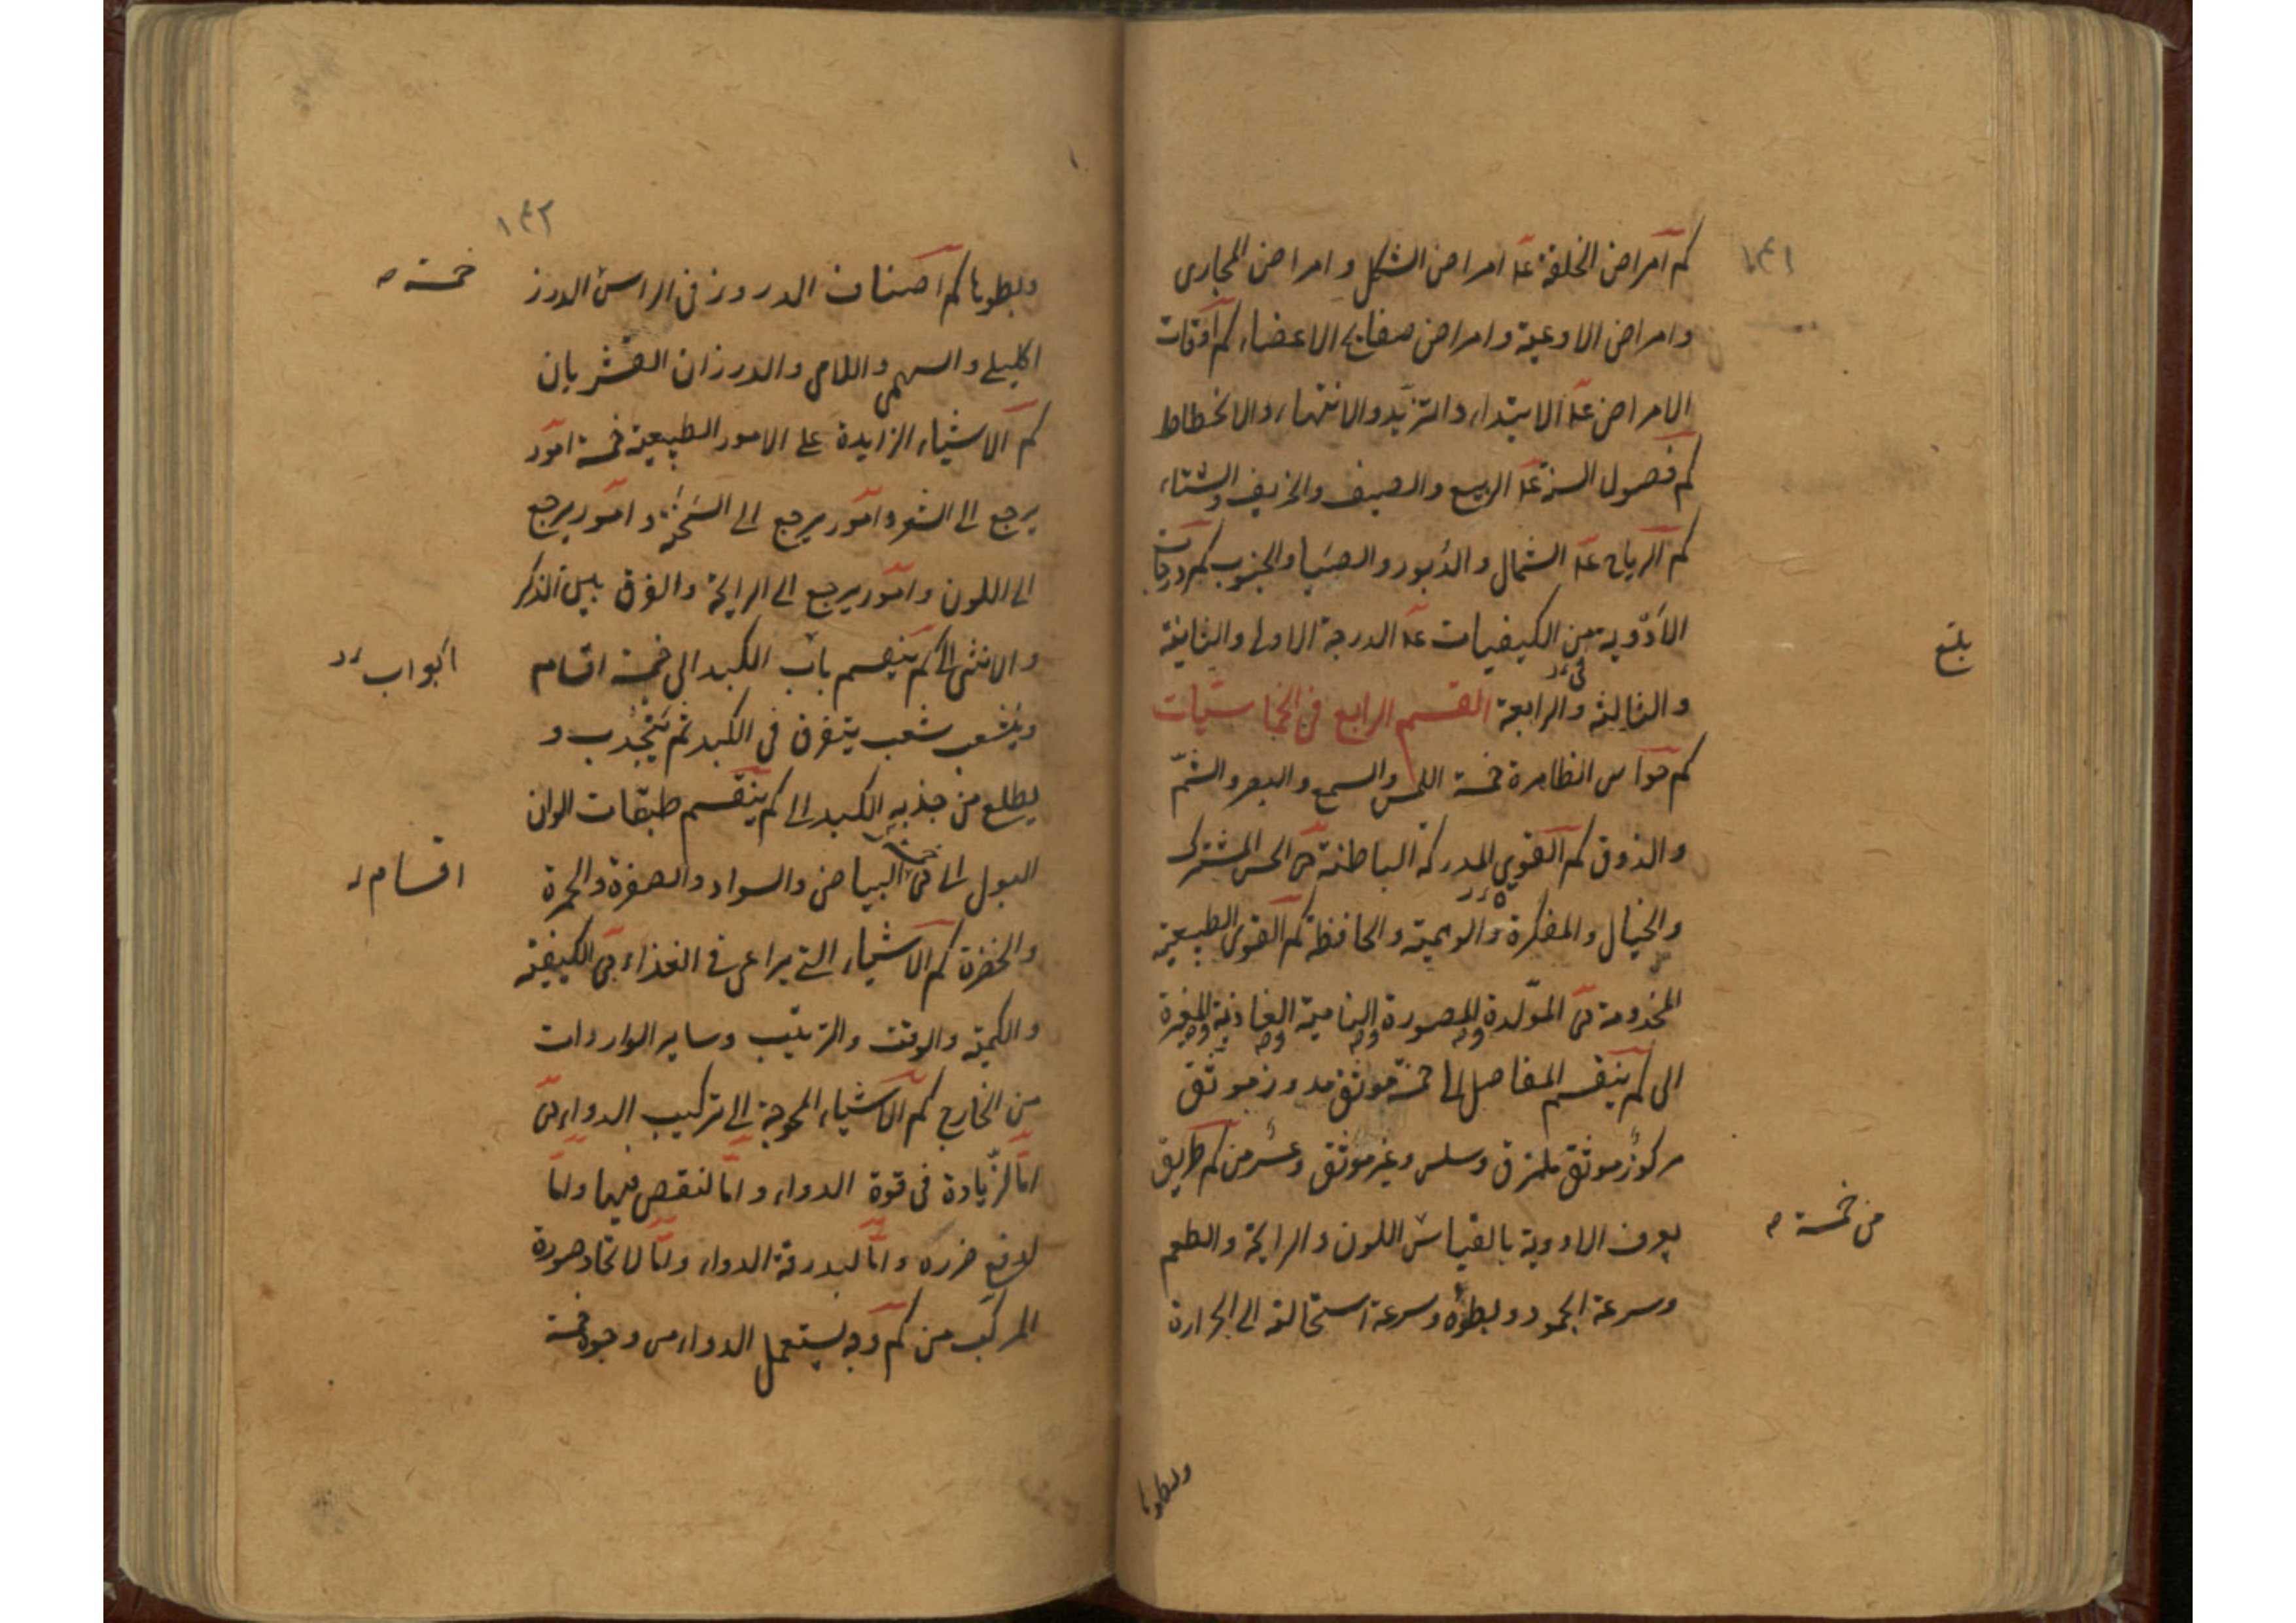 ١٤١
كم امراض الخلقة عد امراض الشكل و امراض المجارى
وامراض الاوعية وامراض صفايح الاعضاء كم اوقات
الامراض عد الابتداء والتزيد والانتهاء والانحطاط
كم فصول السنة عد الربيع والصيف والخريف والشتاء
كم الرياح عد الشمال والدبور والصبا والجنوب كم درجات
الادوية من الكيفيات عد الدرجة الاولى والثانية
بلغ
والثالثه والرابعة القسم الرابع فى الخماسيات
كم حواس الظاهرة خمسة اللمس والسمع والبصر والشم
والذوق كم القوى المدركة الباطنة الحس المشترك
والخيال والمفكرة والوهمية والحافظة كم القوى الطبيعية
المخدومة المولدة والمصورة النامية الغاذية المغيرة
الى كم ينقسم المفاصل الى خمسة موثق مدروز موثق
مركوز موثق ملتزق وسلس وغير موثق وعسر من كم طريق
من خمسة
يعرف الادوية بالقياس اللون والرايحة والطعم
وسرعة الجمود وبطؤه وسرعة استحالته الى الحرارة
وبطوها
١٤٢
وبطوها كم اصناف الدروز فى الراس الدرز
خمسة
اكليلى والسهمى واللامى والدرزان القشريان
كم الاشياء الزايدة على الامور الطبيعية خمسة امور
يرجع الى الشعر وامور يرجع الى السحنة و امور يرجع
الى اللون وامور يرجع الى الرايحة والفرق بين الذكر
والانثى الى كم ينقسم باب الكبد الى خمسة اقسام
ابواب
ويتشعب شعب يتفرق فى الكبد ثم يتجذب و
يطلع من جذبه الكبد الى كم ينقسم طبقات الوان
البول الى البياض والسواد والصفرة والحمرة
اقسام
والخضرة كم الاشياء التى يراعى فى الغذاء الكيفية
والكمية والوقت والترتيب وساير الواردات
من الخارج كم الاشياء المحوجة الى تركيب الدواء
اما لزيادة فى قوة الدواء واما لنقص فيها واما
لدفع ضرره واما لبدرقة الدواء واما لاتحاد صورة
المركب من كم وجه يستعمل الدواء من وجوه خمسة